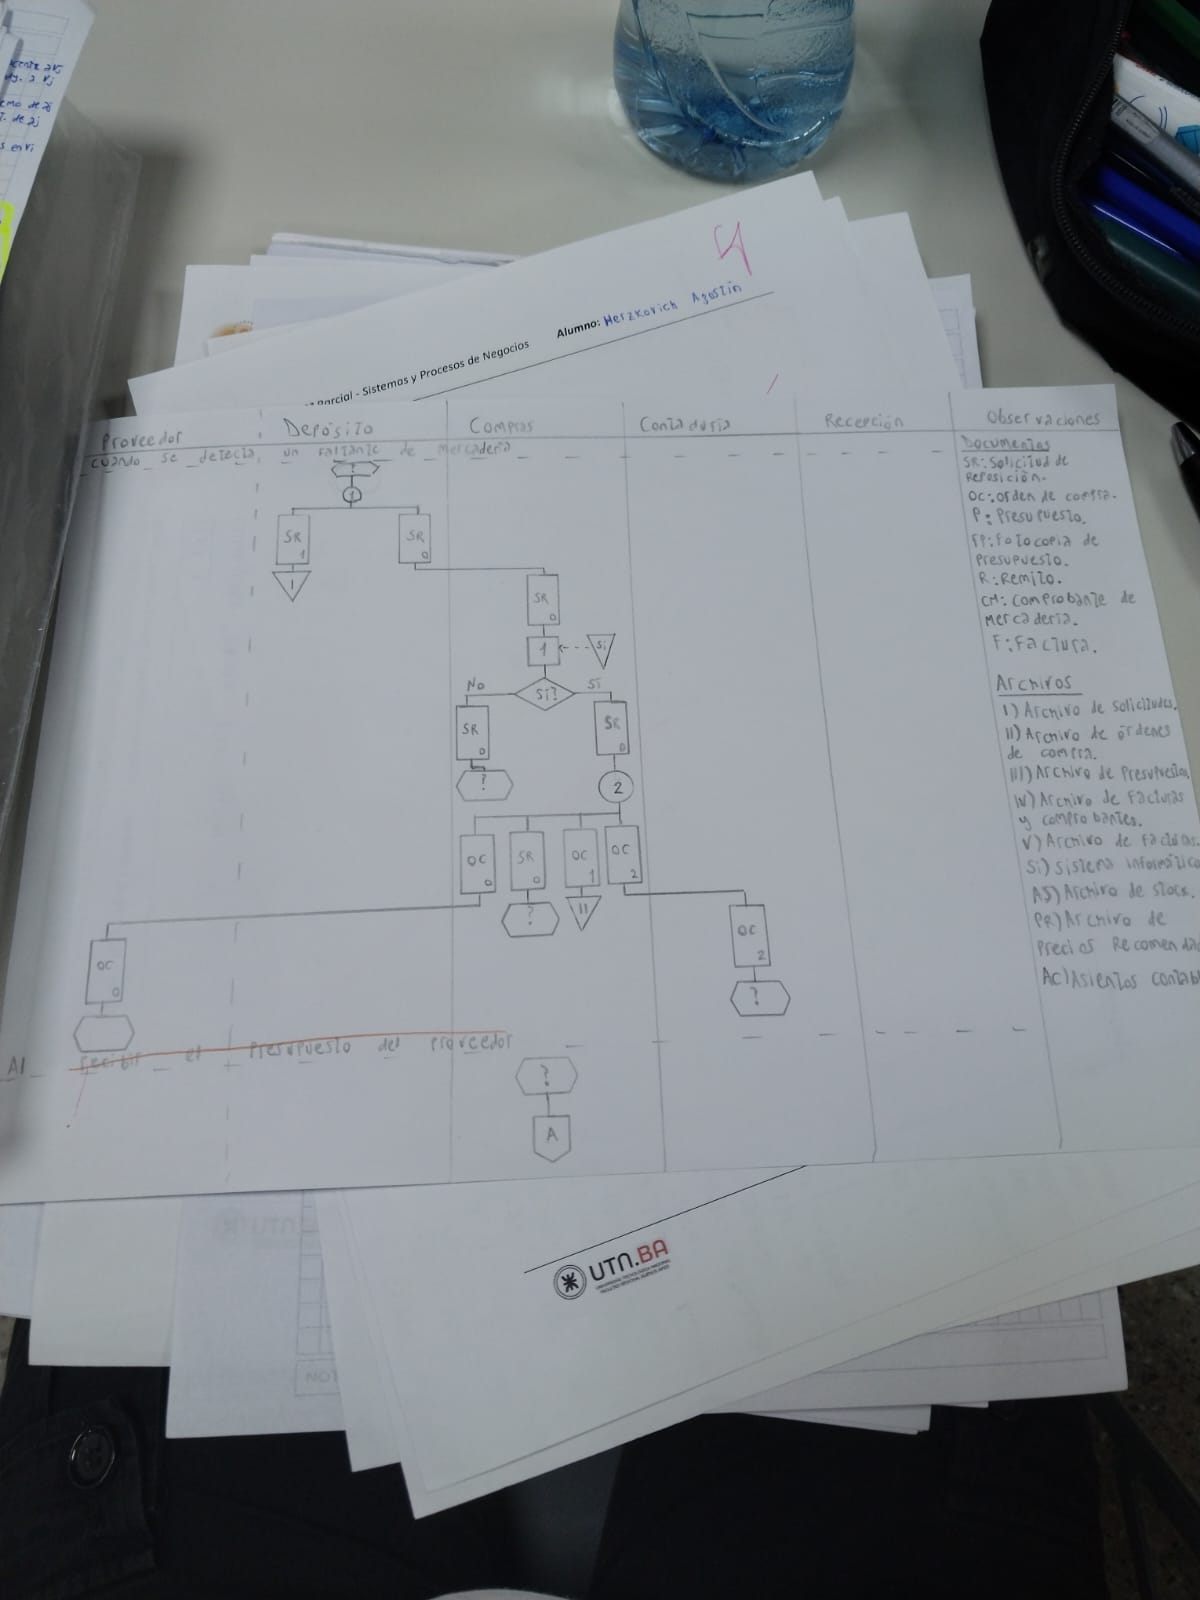 4
Parcial - Sistemas y Procesos de Negocios
Alumno: Herzkovich Agostin
Proveedor
Depósito
Compras
Contaduria
Recepción
Observaciones
cuando se detecta un faltante de mercaderia
?
1
SR
1
SR
0
I
SR
0
1
Si
No
Si?
Si
SR
0
SR
0
?
2
OC
0
SR
0
OC
1
OC
2
?
II
OC
0
OC
2
?
Al recibir el Presupuesto del Proveedor
?
A
Documentos
SR: Solicitud de
Reposición.
OC: orden de compra.
P: Presupuesto.
FP: Fotocopia de
Presupuesto.
R: Remito.
CM: Comprobante de
Mercaderia.
F: Factura.
Archivos
I) Archivo de solicitudes.
II) Archivo de órdenes
de compra.
III) Archivo de Presupuestos
IV) Archivo de Facturas
y comprobantes.
V) Archivo de facturas.
Si) sistema informático
AS) Archivo de stock.
PR) Archivo de
Precios Recomenda
AC) Asientos contab
UTN.BA
UNIVERSIDAD TECNOLÓGICA NACIONAL
FACULTAD REGIONAL BUENOS AIRES